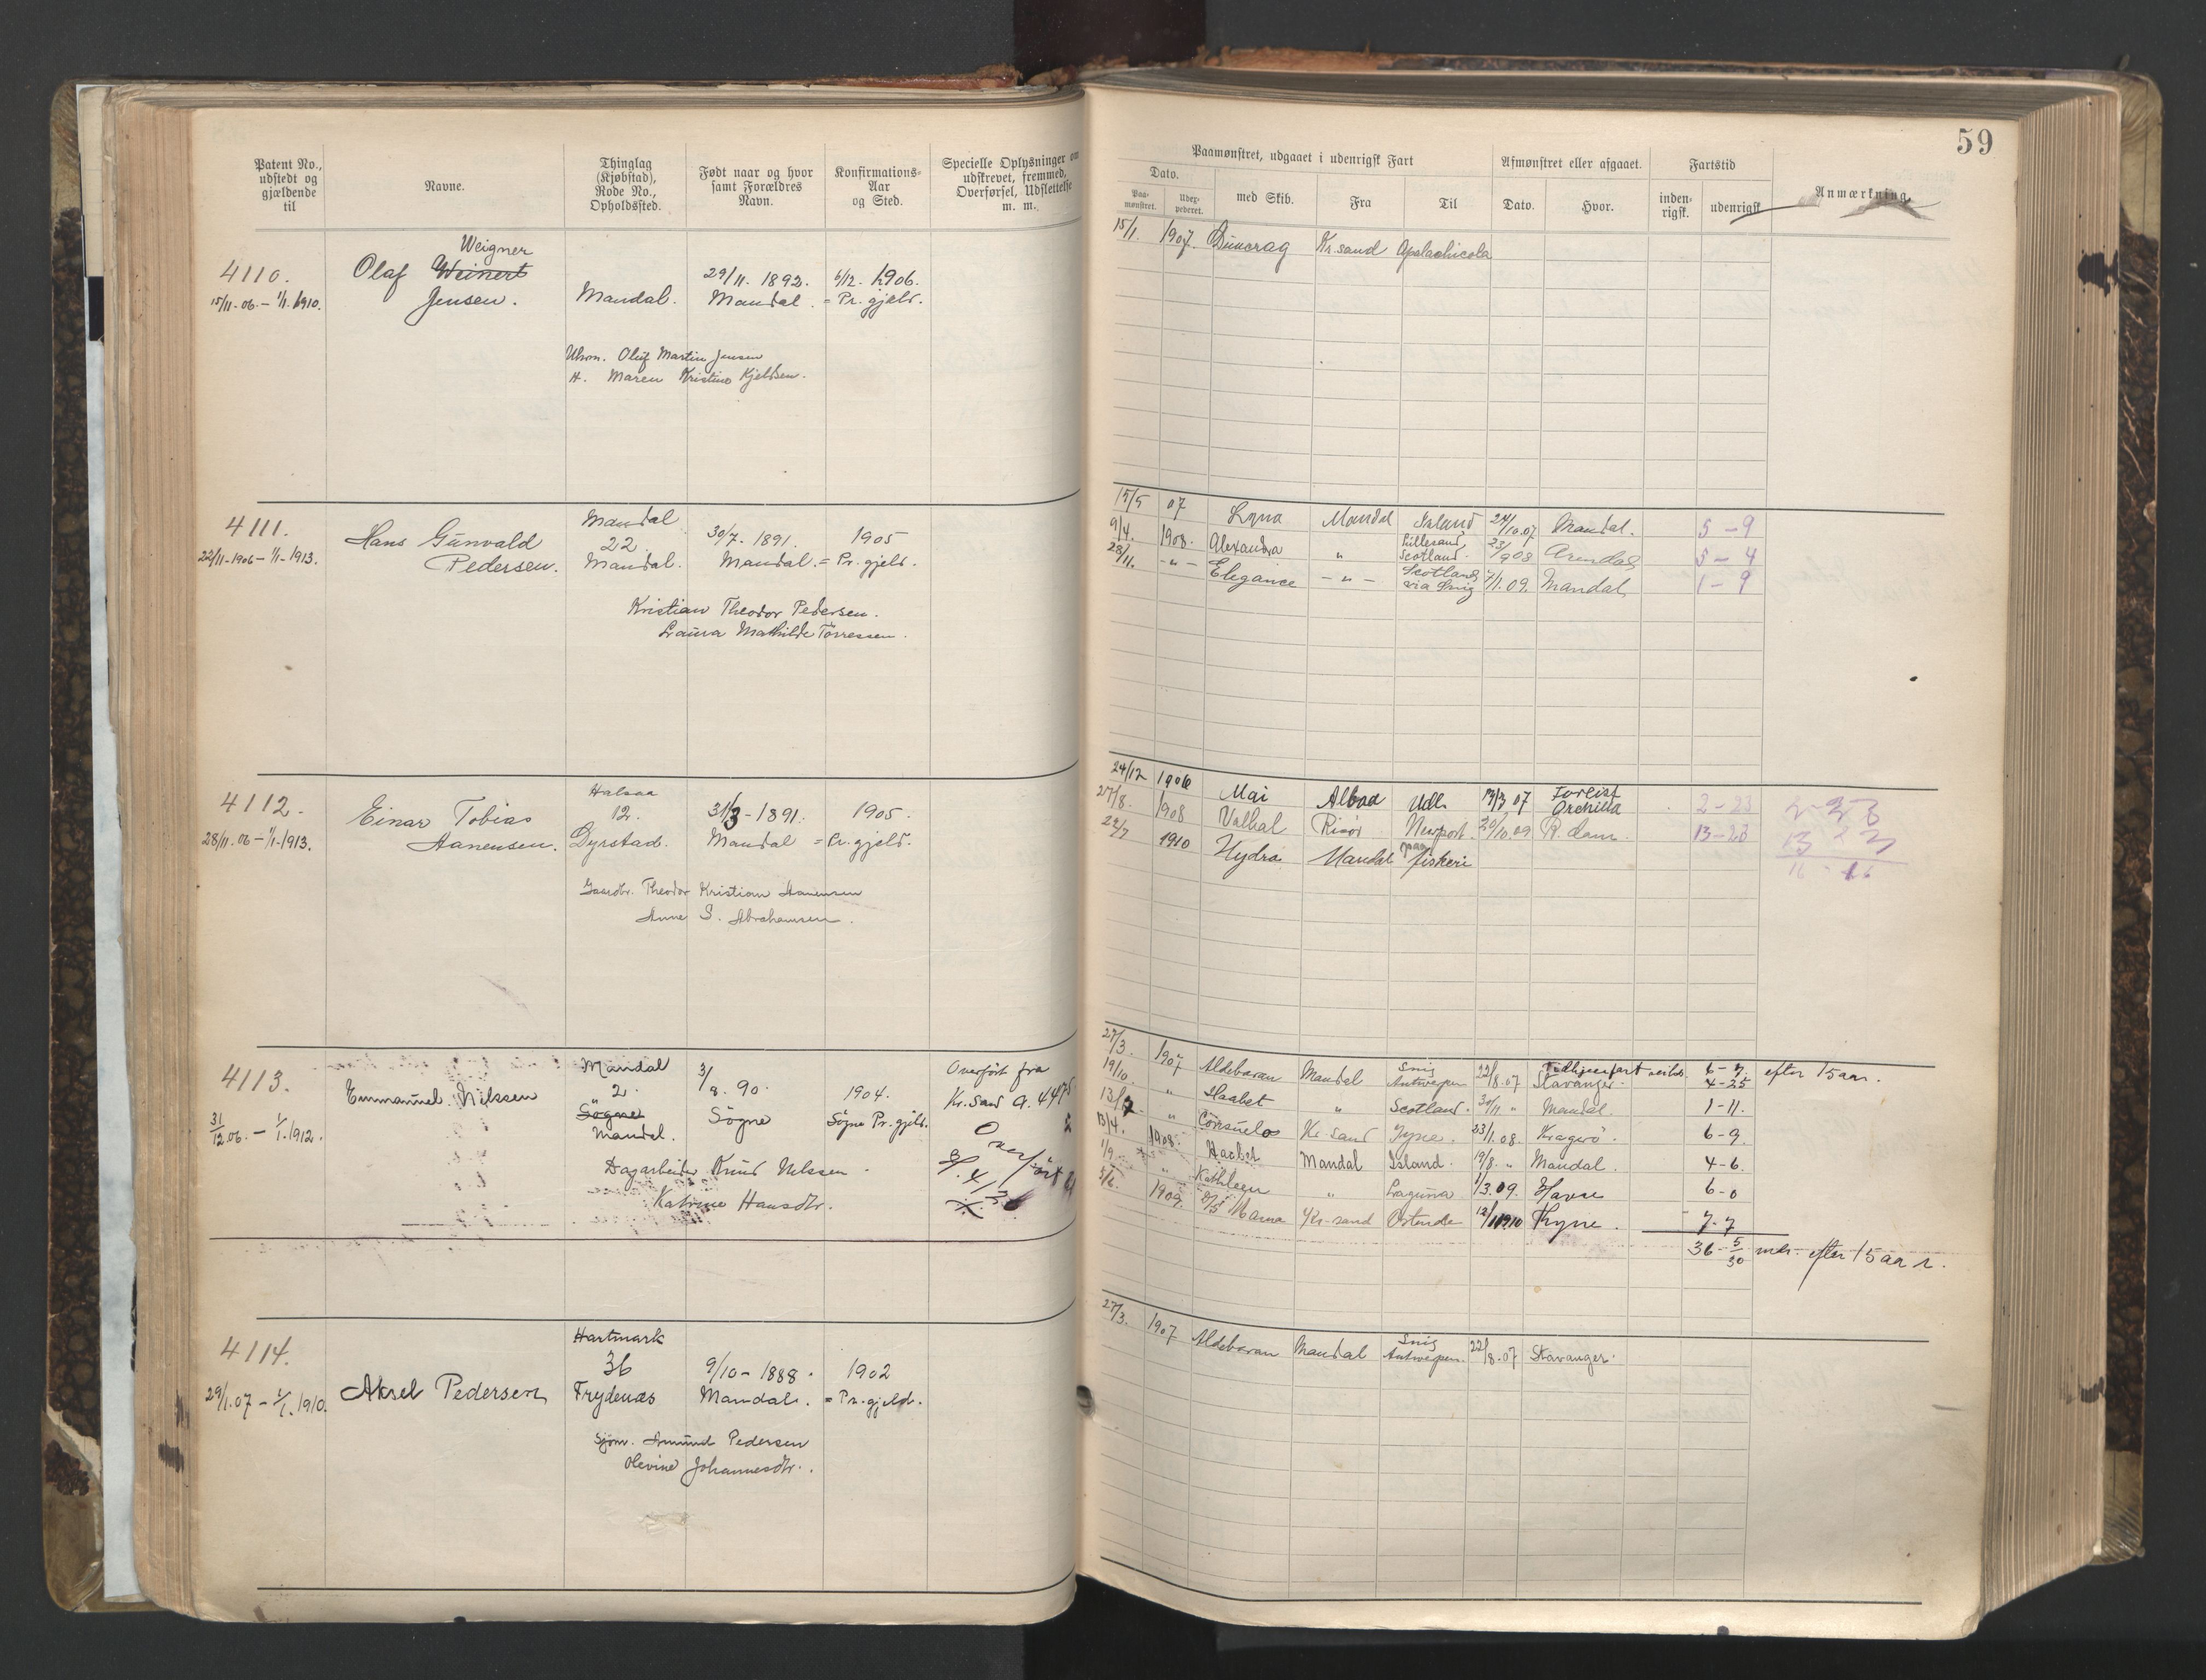 59
Patent No., udstedt og gjældende til
Navne.
Thinglag (Kjøbstad), Rode No., Opholdssted.
Født naar og hvor samt Forældres Navn.
Konfirmations-Aar og Sted.
Specielle Oplysninger om udskrevet, fremmed, Overførsel, Udslettelse m. m.
Paamønstret, udgaaet i udenrigsk Fart
Dato.
Paa-mønstret.
Udex-pederet.
med Skib.
Fra
Til
Afmønstret eller afgaaet.
Dato.
Hvor.
Fartstid
inden-rigsk.
udenrigsk
Anmærkning.
4110.
15/11.06.-1/1.1910.
Weigner
Olaf Weinert
Jensen.
Mandal.
29/11. 1892.
Mandal.
6/12. 1906.
= Pr. gjeld.
Uhrm. Oluf Martin Jensen
H. Maren Kristine Kjeldsen.
15/1. 1907. Kr.sand Apalachicola
4111.
22/11-1906-1/1-1913.
Hans Gunvald
Pedersen.
Mandal
22.
Mandal.
30/7-1891.
Mandal.
1905
= Pr. gjeld.
Kristian Theodor Pedersen.
Laura Mathilde Torressen.
15/5 07 Lyna Mandal Island 24/10.07 Mandal. 5-9
9/4. 1908. Alexandra " Lillesand, Scotland. 23/9 08 Arendal 5-4
28/11. -"- Elegance -"- Scotland via Snig 7/1.09. Mandal 1-9
4112.
28/11.06-1/1-1913.
Einar Tobias
Hanensen.
Halsaa
12.
Dyrstad.
31/3-1891.
Mandal
1905.
= Pr. gjeld.
Gaardbr. Theodor Kristian Hanensen
Anne S. Abrahamsen.
24/12 1906 Mai Alboa Udl. 13/3 07 Orchilla 2-23
27/8. 1908 Valhal Risør Newport. 20/10.09 R.dam. 13-23
24/7 1910 Hydra Mandal paa fiskeri
16-16
4113.
31/12.06.-1/1.1912.
Emmanuel Nilssen
Mandal
2.
Søgne
Mandal.
3/9.90.
Søgne
1904.
Søgne Pr.gjeld.
Overført fra
Kr.sand A. 4475
Overført
Dagarbeider Knud Nilssen.
Katrine Hansdtr.
27/3. 1907 Aldebaran Mandal Snig Antwerpen 22/8.07 Stavanger. 4-25 efter 15 aar.
19/10. " Haabet " Scotland. 30/11. " Mandal. 1-11.
" Consuelo Kr.sand Tyne. 23/1.08. Kragerø. 6-9.
13/4. 1908. Haabet Mandal Island. 19/8. " Mandal. 4-6.
1/9 " Kathleen " Laguna 1/3.09. Havre 6-0
1909. Mama Kr-sand Ostende 12/1 1910 Tyne. 7-7
36-5/30 mdr. efter 15 aar.
4114.
29/1.07-1/1.1910.
Aksel Pedersen
Hartmark
36
Frydenæs
9/10-1888.
Mandal.
1902
= Pr. gjeld.
Sjøm. Amund Pedersen
Olevine Johannesdtr.
27/3. 1907 Aldebaran Mandal Snig Antwerpen. 22/8.07 Stavanger.